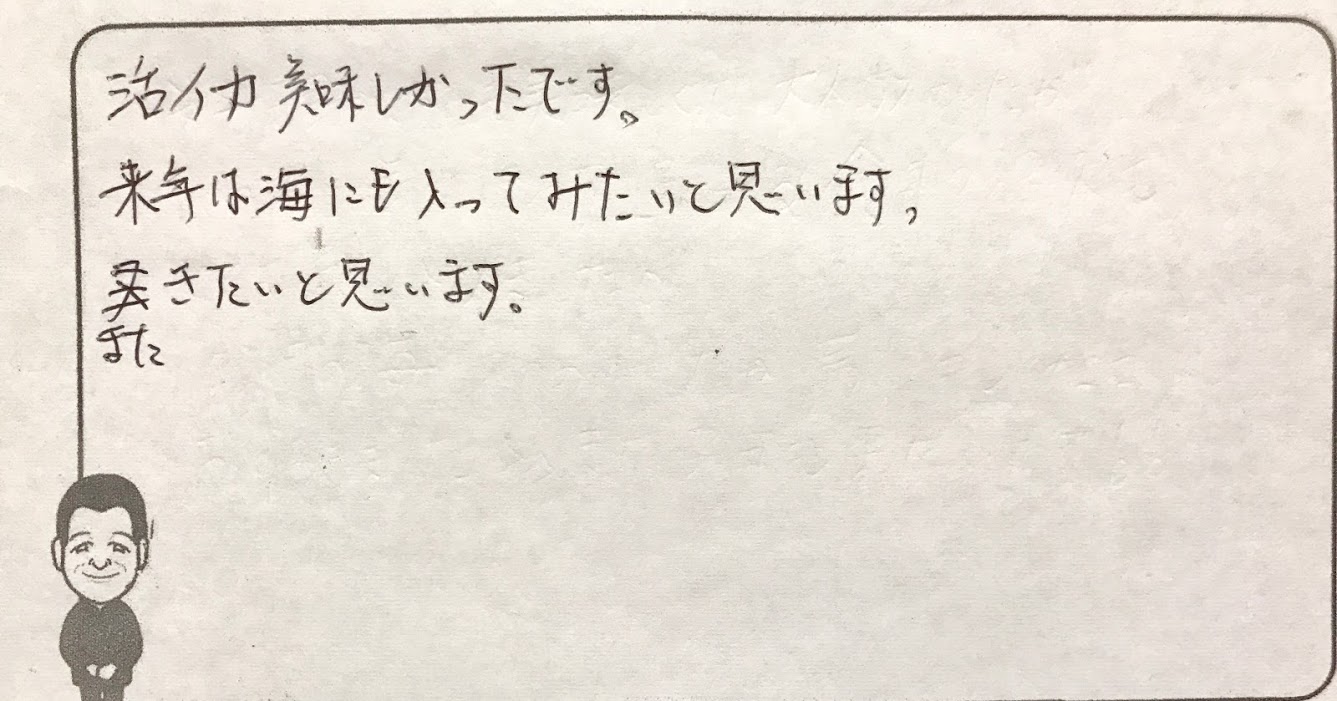 活イカ美味しかったです。
来年は海にも入ってみたいと思います。
きたいと思います。
また